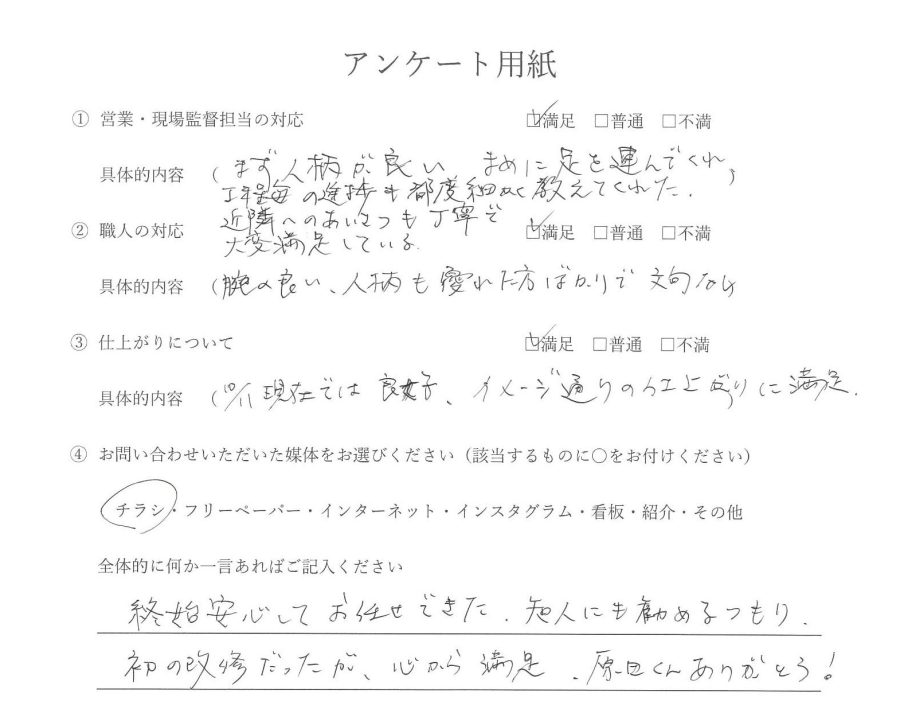 アンケート用紙
① 営業・現場監督担当の対応 ☑満足 □普通 □不満
具体的内容 (まず人柄が良い まめに足を運んでくれ,)
工程毎の進捗も都度細かく教えてくれた.
近隣へのあいさつも丁寧で
大変満足している.
② 職人の対応 ☑満足 □普通 □不満
具体的内容 (腕の良い、人柄も優れた方ばかりで文句なし
③ 仕上がりについて ☑満足 □普通 □不満
具体的内容 (10/11現在では良好、イメージ通りの仕上がりに満足.)
④ お問い合わせいただいた媒体をお選びください（該当するものに○をお付けください）
チラシ・フリーペーパー・インターネット・インスタグラム・看板・紹介・その他
全体的に何か一言あればご記入ください
終始安心してお任せできた.知人にも勧めるつもり.
初の改修だったが、心から満足.原田くんありがとう!